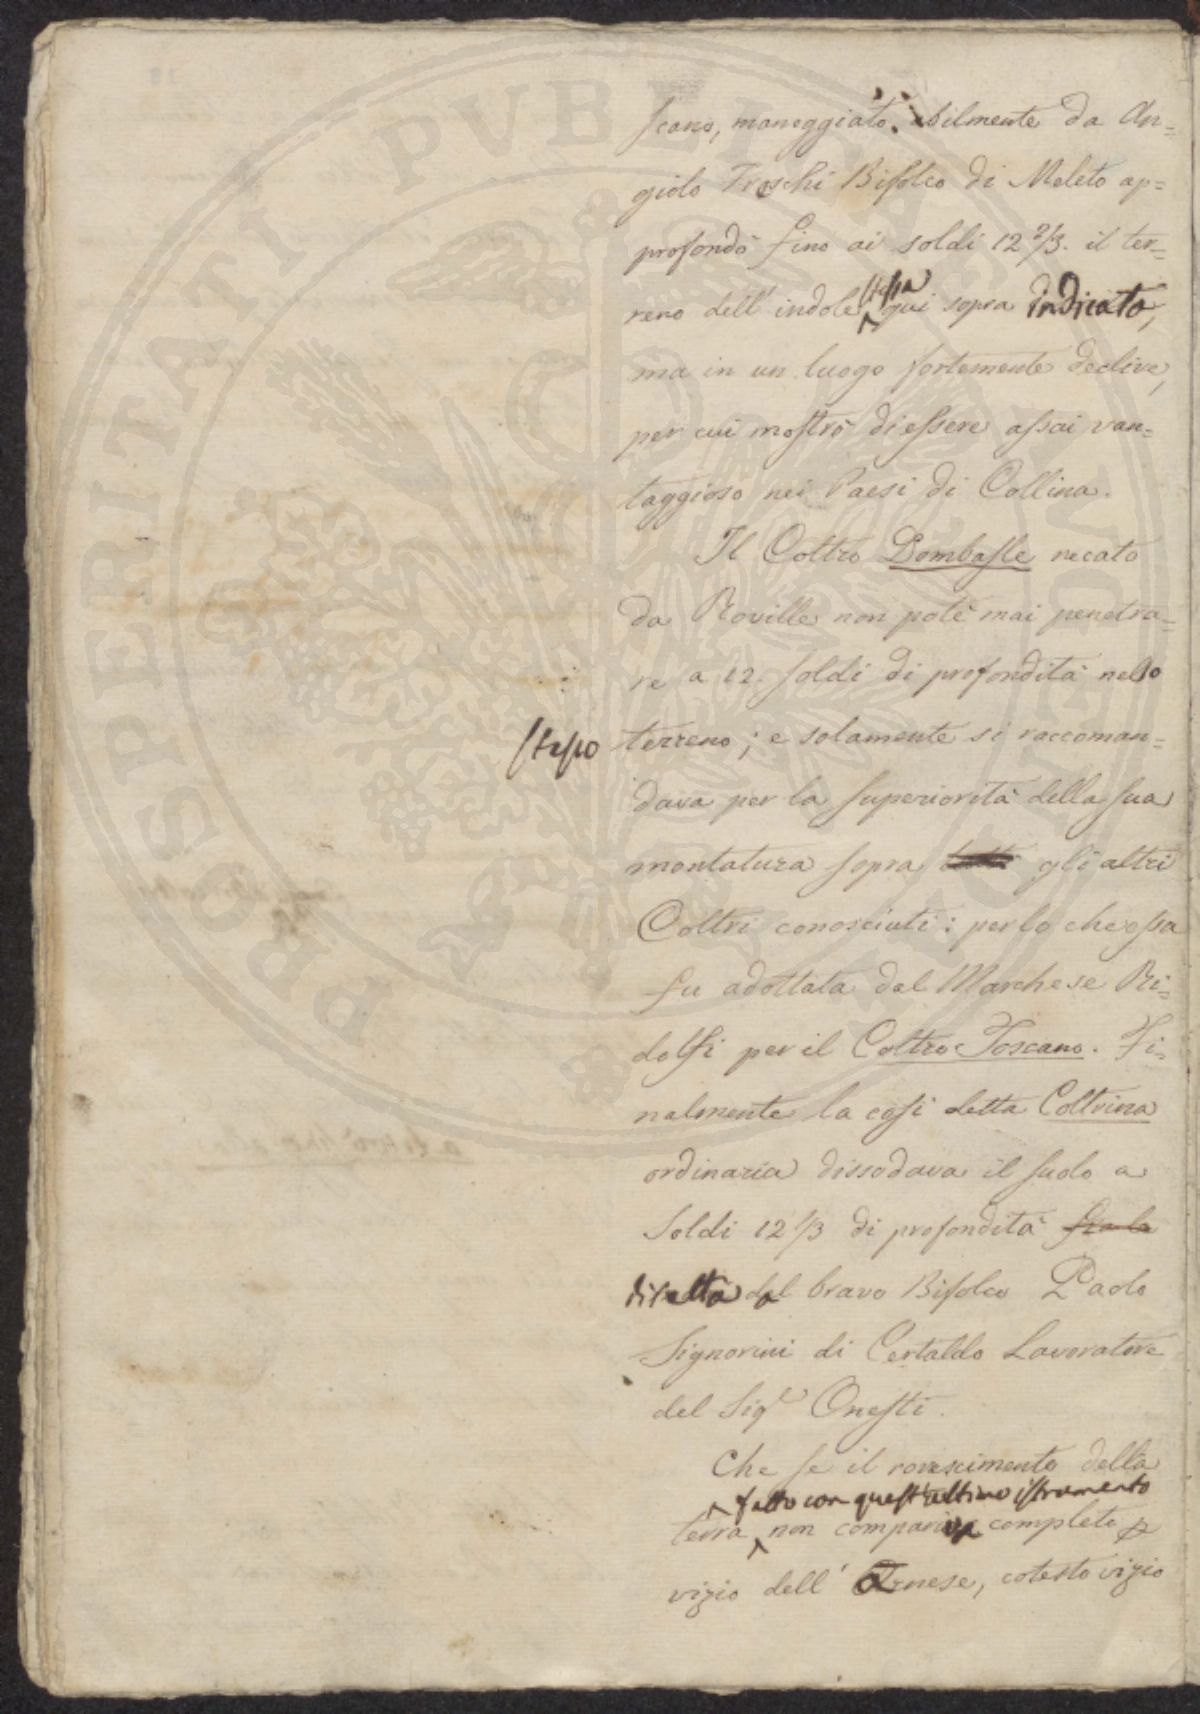 scano, maneggiato abilmente da An=
giolo Freschi Bifolco di Meleto ap=
profondò fino ai soldi 12 2/3. il ter=
reno dell' indole stessa qui sopra indicata,
ma in un luogo fortemente declive,
per cui mostrò di essere assai van=
taggioso nei Paesi di Collina.
Il Coltro Dombasle recato
da Roville non potè mai penetra=
re a 12. soldi di profondità nello
stesso terreno; e solamente si raccoman=
dava per la superiorità della sua
montatura sopra tutti gli altri
Coltri conosciuti: per lo che essa
fu adottata dal Marchese Ri=
dolfi per il Coltro Toscano. Fi=
nalmente la così detta Coltrina
ordinaria dissodava il suolo a
Soldi 12 1/3 di profondità
diretta dal bravo Bifolco Paolo
Signorini di Certaldo Lavoratore
del Sigr Onesti.
Che se il rovescimento della
fatto con quest'ultimo istrumento
terra non comparve completo p
vizio dell' Arnese, cotesto vizio
PROSPERITATI PUBLICAE